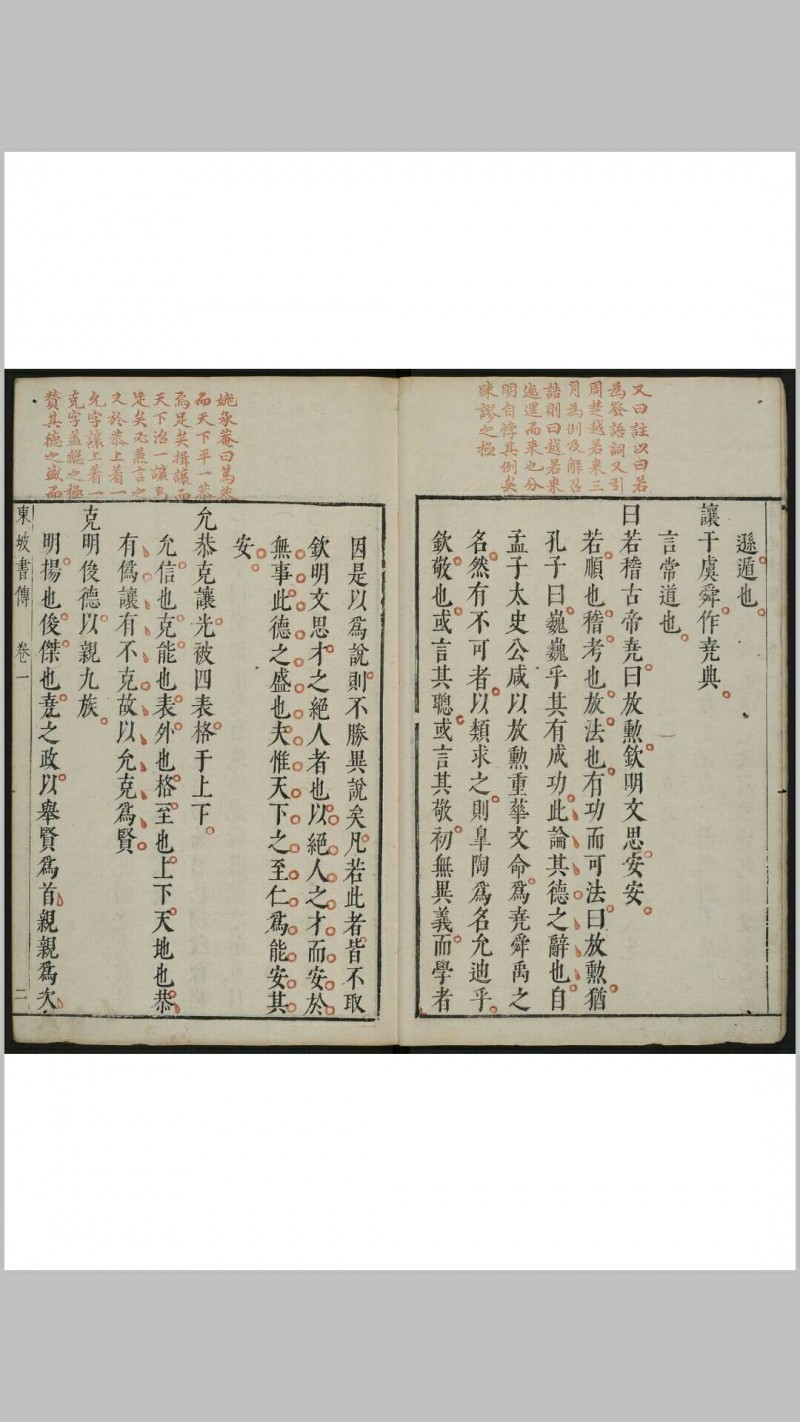 又曰註以曰若
為發語詞又引
周楚越若來三
月為例及解召
誥則曰越若來
迤邐而來也分
明自悖其例矣
疎謬之極
遜遁也
讓于虞舜作堯典
言常道也
曰若稽古帝堯曰放勳欽明文思安安
若順也稽考也放法也有功而可法曰放勳猶
孔子曰巍巍乎其有成功此論其德之辭也自
孟子太史公咸以放勳重華文命爲堯舜禹之
名然有不可者以類求之則皐陶爲名允迪乎
欽敬也或言其聰或言其敬初無異義而學者
姚承菴曰篤恭
而天下平一恭
焉足矣揖讓而
天下治一讓焉
足矣又無言之
又於恭上着一
允字讓上着一
克字盖總之極
贊其德之盛而
因是以爲說則不勝異說矣凡若此者皆不取
欽明文思才之絕人者也以絕人之才而安於
無事此德之盛也夫惟天下之至仁爲能安其
安
允恭克讓光被四表格于上下
允信也克能也表外也格至也上下天地也恭
有僞讓有不克故以允克爲賢
克明俊德以親九族
明揚也俊傑也堯之政以舉賢爲首親親爲次
東坡書傳 卷一 二